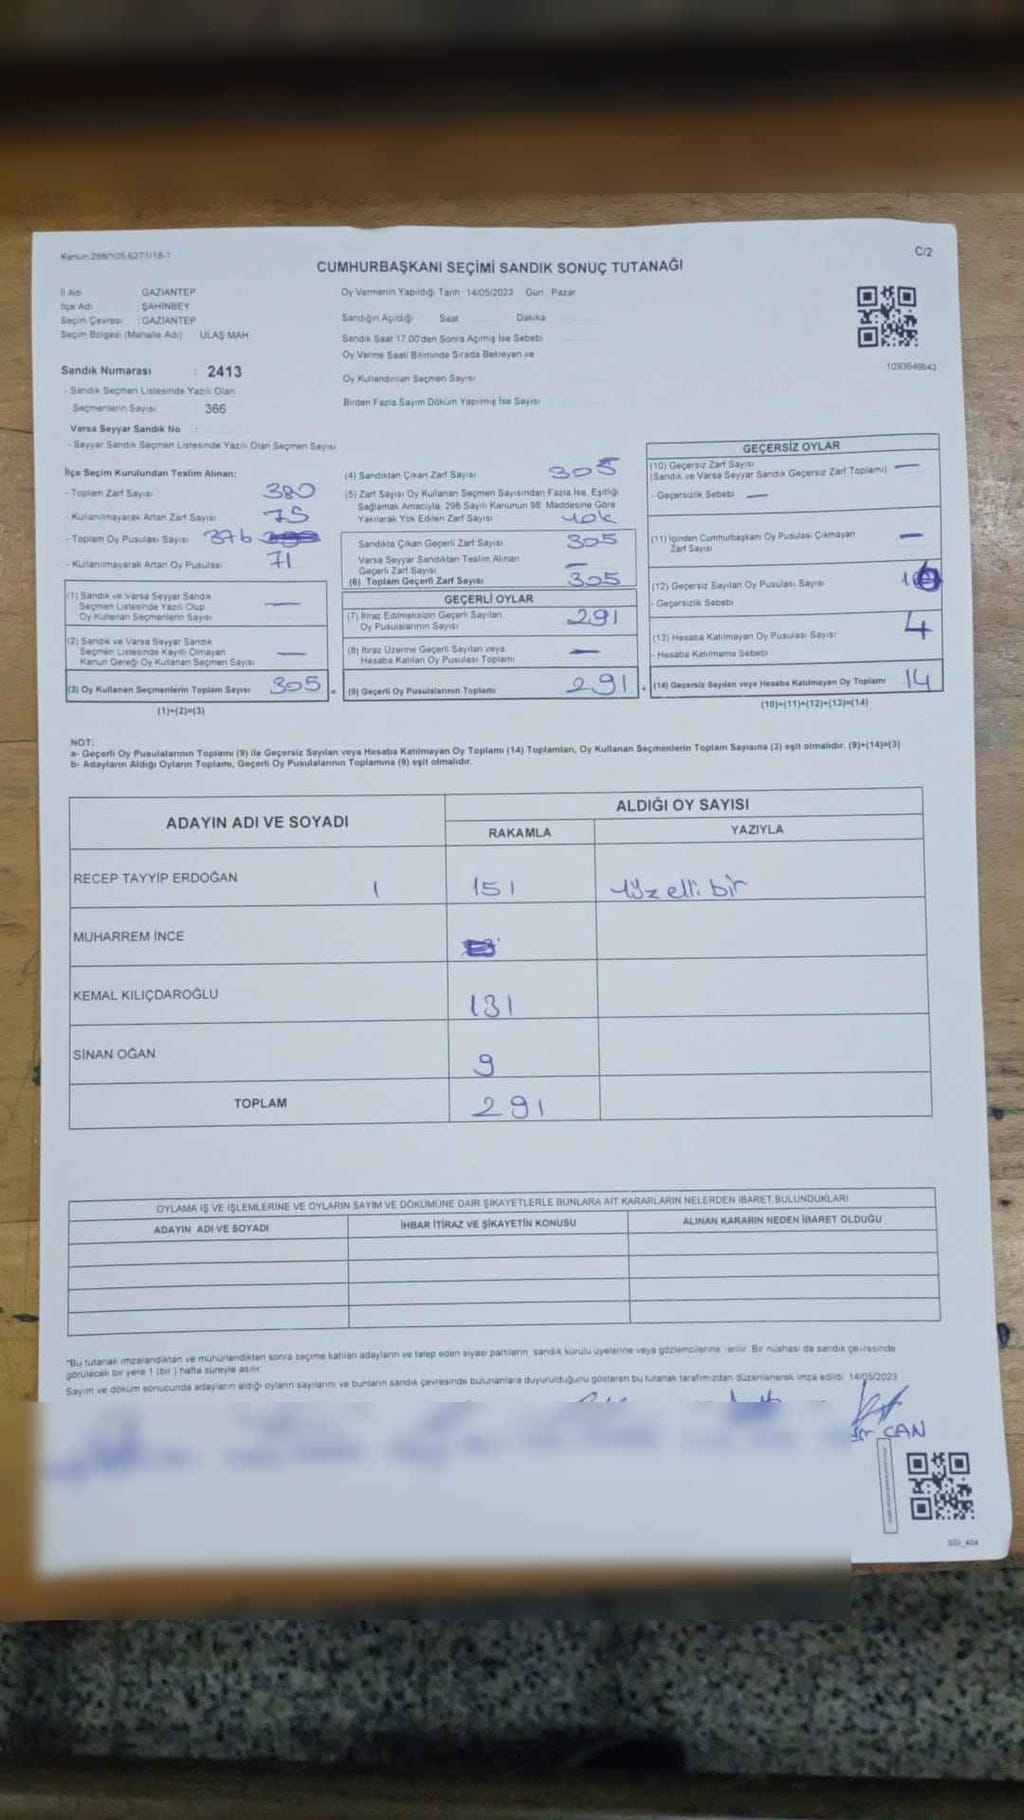 Kanun:298/105,6271/18-1
C/2
CUMHURBAŞKANI SEÇİMİ SANDIK SONUÇ TUTANAĞI
İl Adı : GAZİANTEP
İlçe Adı : ŞAHİNBEY
Seçim Çevresi : GAZİANTEP
Seçim Bölgesi (Mahalle Adı) ULAŞ MAH.
Oy Vermenin Yapıldığı Tarih :14/05/2023 Gün : Pazar
Sandığın Açıldığı Saat Dakika
Sandık Saat 17.00'den Sonra Açılmış İse Sebebi
Oy Verme Saati Bitiminde Sırada Bekleyen ve
Oy Kullandırılan Seçmen Sayısı
Birden Fazla Sayım Döküm Yapılmış İse Sayısı
1093648643
Sandık Numarası : 2413
- Sandık Seçmen Listesinde Yazılı Olan
Seçmenlerin Sayısı : 366
Varsa Seyyar Sandık No :
- Seyyar Sandık Seçmen Listesinde Yazılı Olan Seçmen Sayısı
İlçe Seçim Kurulundan Teslim Alınan:
- Toplam Zarf Sayısı 380
- Kullanılmayarak Artan Zarf Sayısı 75
- Toplam Oy Pusulası Sayısı 376
- Kullanılmayarak Artan Oy Pusulası 71
(1) Sandık ve Varsa Seyyar Sandık
Seçmen Listesinde Yazılı Olup
Oy Kullanan Seçmenlerin Sayısı —
(2) Sandık ve Varsa Seyyar Sandık
Seçmen Listesinde Kayıtlı Olmayan
Kanun Gereği Oy Kullanan Seçmen Sayısı —
(3) Oy Kullanan Seçmenlerin Toplam Sayısı 305
(1)+(2)=(3)
(4) Sandıktan Çıkan Zarf Sayısı 305
(5) Zarf Sayısı Oy Kullanan Seçmen Sayısından Fazla İse, Eşitliği
Sağlamak Amacıyla, 298 Sayılı Kanunun 98. Maddesine Göre
Yakılarak Yok Edilen Zarf Sayısı yok
Sandıkta Çıkan Geçerli Zarf Sayısı 305
Varsa Seyyar Sandıktan Teslim Alınan
Geçerli Zarf Sayısı —
(6) Toplam Geçerli Zarf Sayısı 305
GEÇERLİ OYLAR
(7) İtiraz Edilmeksizin Geçerli Sayılan
Oy Pusulalarının Sayısı 291
(8) İtiraz Üzerine Geçerli Sayılan veya
Hesaba Katılan Oy Pusulası Toplamı —
(9) Geçerli Oy Pusulalarının Toplamı 291
GEÇERSİZ OYLAR
(10) Geçersiz Zarf Sayısı
(Sandık ve Varsa Seyyar Sandık Geçersiz Zarf Toplamı) —
- Geçersizlik Sebebi —
(11) İçinden Cumhurbaşkanı Oy Pusulası Çıkmayan
Zarf Sayısı —
(12) Geçersiz Sayılan Oy Pusulası Sayısı
- Geçersizlik Sebebi
(13) Hesaba Katılmayan Oy Pusulası Sayısı 4
- Hesaba Katılmama Sebebi
(14) Geçersiz Sayılan veya Hesaba Katılmayan Oy Toplamı 14
(10)+(11)+(12)+(13)=(14)
NOT:
a- Geçerli Oy Pusulalarının Toplamı (9) ile Geçersiz Sayılan veya Hesaba Katılmayan Oy Toplamı (14) Toplamları, Oy Kullanan Seçmenlerin Toplam Sayısına (3) eşit olmalıdır. (9)+(14)=(3)
b- Adayların Aldığı Oyların Toplamı, Geçerli Oy Pusulalarının Toplamına (9) eşit olmalıdır.
ADAYIN ADI VE SOYADI
ALDIĞI OY SAYISI
RAKAMLA YAZIYLA
RECEP TAYYİP ERDOĞAN 1 151 yüz elli bir
MUHARREM İNCE
KEMAL KILIÇDAROĞLU 131
SİNAN OĞAN 9
TOPLAM 291
OYLAMA İŞ VE İŞLEMLERİNE VE OYLARIN SAYIM VE DÖKÜMÜNE DAİR ŞİKAYETLERLE BUNLARA AİT KARARLARIN NELERDEN İBARET BULUNDUKLARI
ADAYIN ADI VE SOYADI İHBAR İTİRAZ VE ŞİKAYETİN KONUSU ALINAN KARARIN NEDEN İBARET OLDUĞU
*Bu tutanak imzalandıktan ve mühürlendikten sonra seçime katılan adayların ve talep eden siyasi partilerin sandık kurulu üyelerine veya gözlemcilerine verilir. Bir nüshası da sandık çevresinde
görülecek bir yere 1 (bir) hafta süreyle asılır.
Sayım ve döküm sonucunda adayların aldığı oyların sayılarını ve bunların sandık çevresinde bulunanlara duyurulduğunu gösteren bu tutanak tarafımızdan düzenlenerek imza edildi. 14/05/2023
CAN